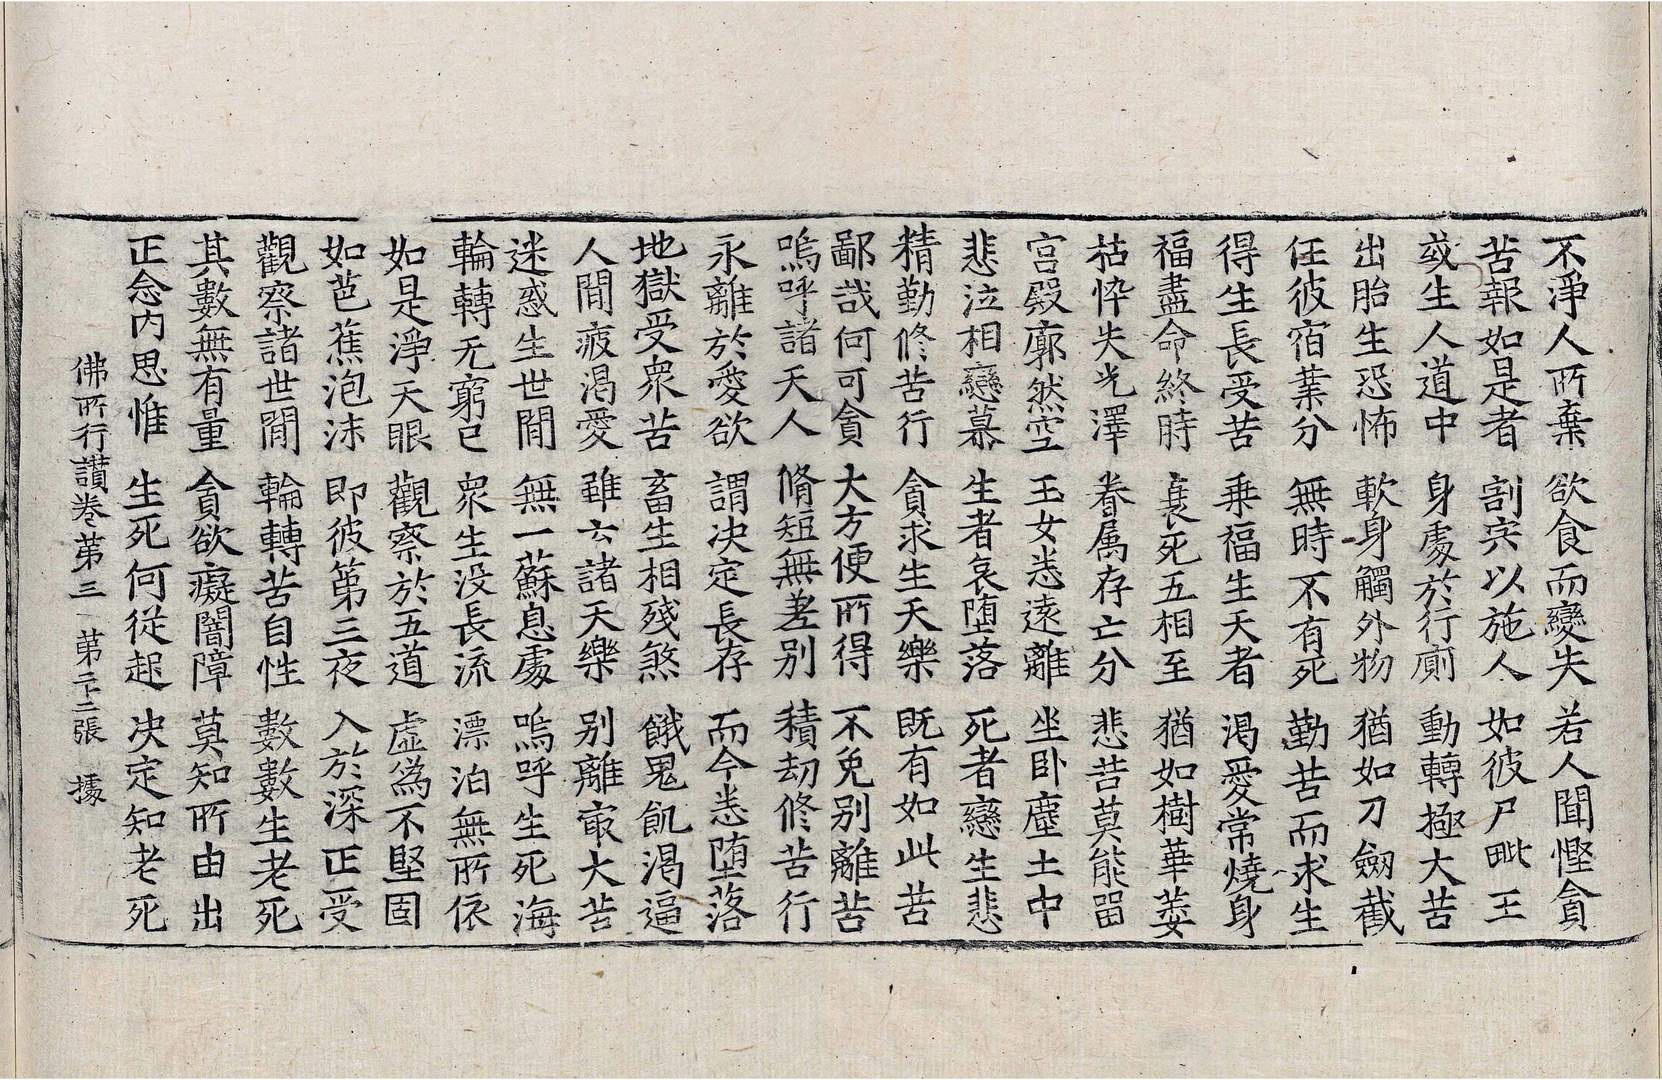 不淨人所棄 欲食而變失 若人聞慳貪
苦報如是者 割宍以施人 如彼尸毗王
或生人道中 身處於行廁 動轉極大苦
出胎生恐怖 軟身觸外物 猶如刀劒截
任彼宿葉分 無時不有死 勤苦而求生
得生長受苦 乗福生天者 渇愛常燒身
福盡命終時 衰死五相至 猶如樹華萎
枯悴失光澤 眷属存亡分 悲苦莫能留
宮殿廓然空 玉女悉遠離 坐卧塵土中
悲泣相戀慕 生者哀堕落 死者戀生悲
精勤修苦行 貪求生天樂 既有如此苦
鄙哉何可貪 大方便所得 不免別離苦
嗚呼諸天人 脩短無差別 積劫修苦行
永離於愛欲 謂决定長存 而今悉堕落
地獄受衆苦 畜生相殘煞 餓鬼飢渇逼
人間疲渇愛 雖云諸天樂 別離㝡大苦
迷惑生世間 無一蘇息處 嗚呼生死海
輪轉无窮已 衆生没長流 漂泊無所依
如是淨天眼 觀察於五道 虚偽不堅固
如芭蕉泡沫 即彼第三夜 入於深正受
觀察諸世間 輪轉苦自性 數數生老死
其數無有量 貪欲癡闇障 莫知所由出
正念内思惟 生死何從起 决定知老死
佛所行讃卷第三 第二十二張 據